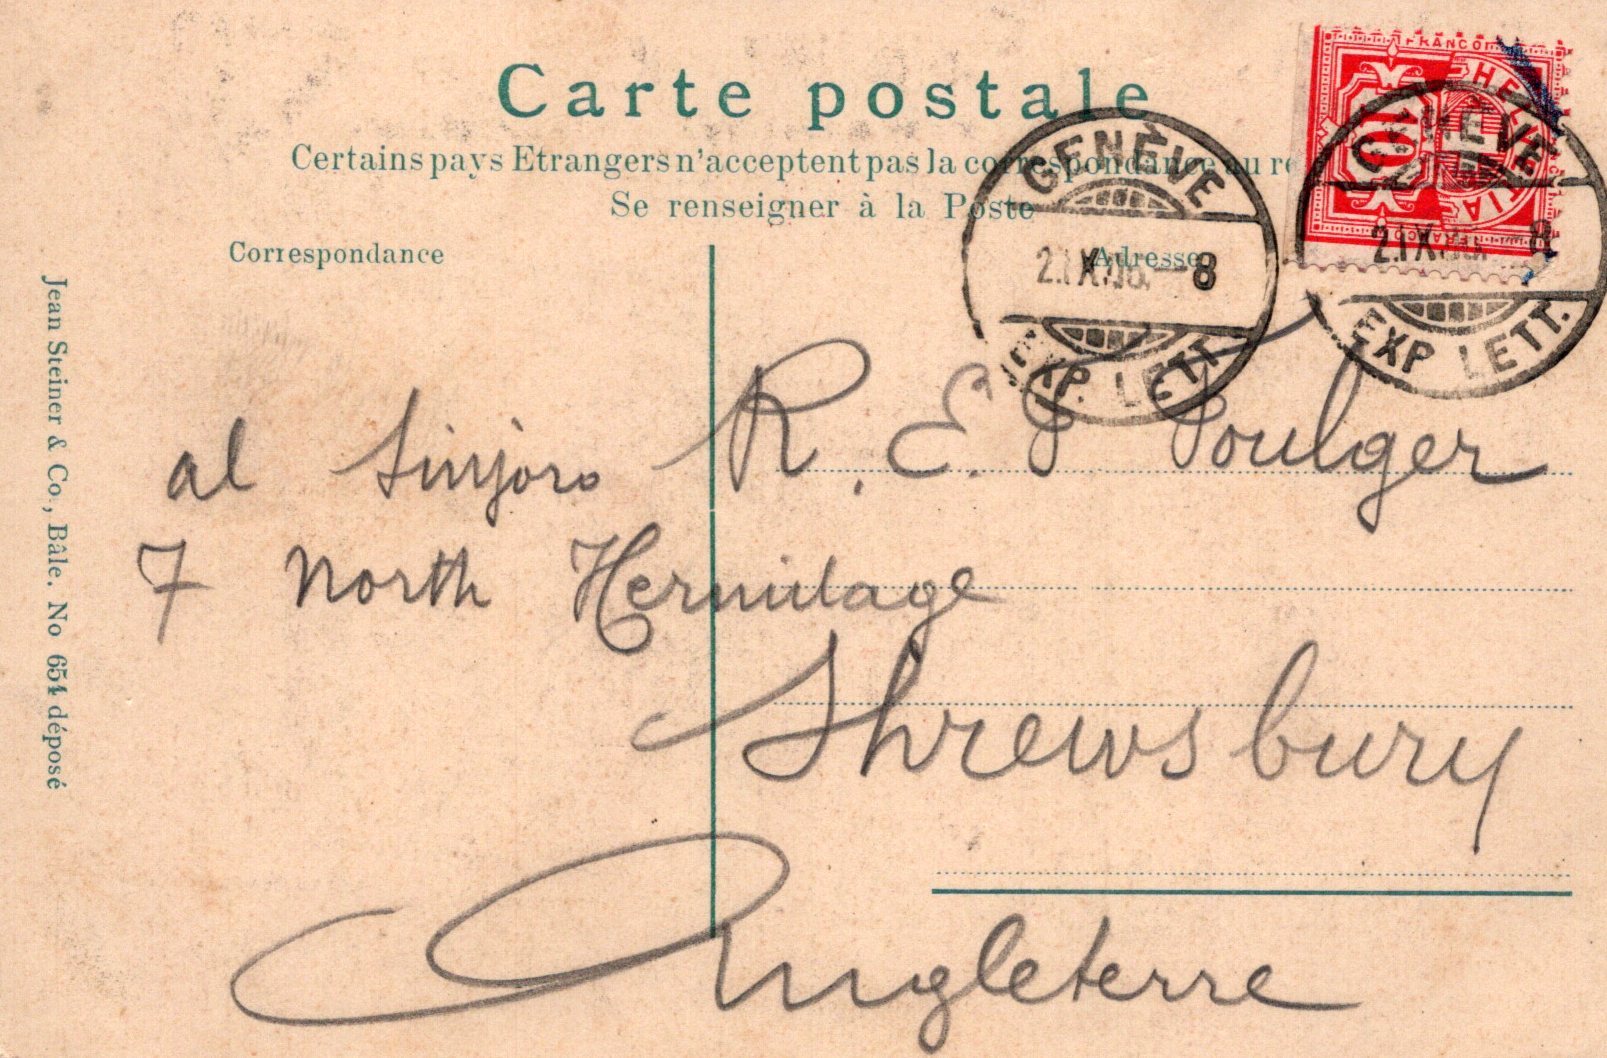 Carte postale
Certains pays Etrangers n'acceptent pas la correspondance au
Se renseigner à la Poste
Correspondance
Adresse
FRANCO
HELVETIA
10
FRANCO
GENÈVE
2.IX.06.–8
EXP. LETT.
GENÈVE
2.IX.06.–8
EXP. LETT.
al Sinjoro R. E. P Poulger
7 North Hermitage
Shrewsbury
Angleterre
Jean Steiner & Co., Bâle. No 654 déposé